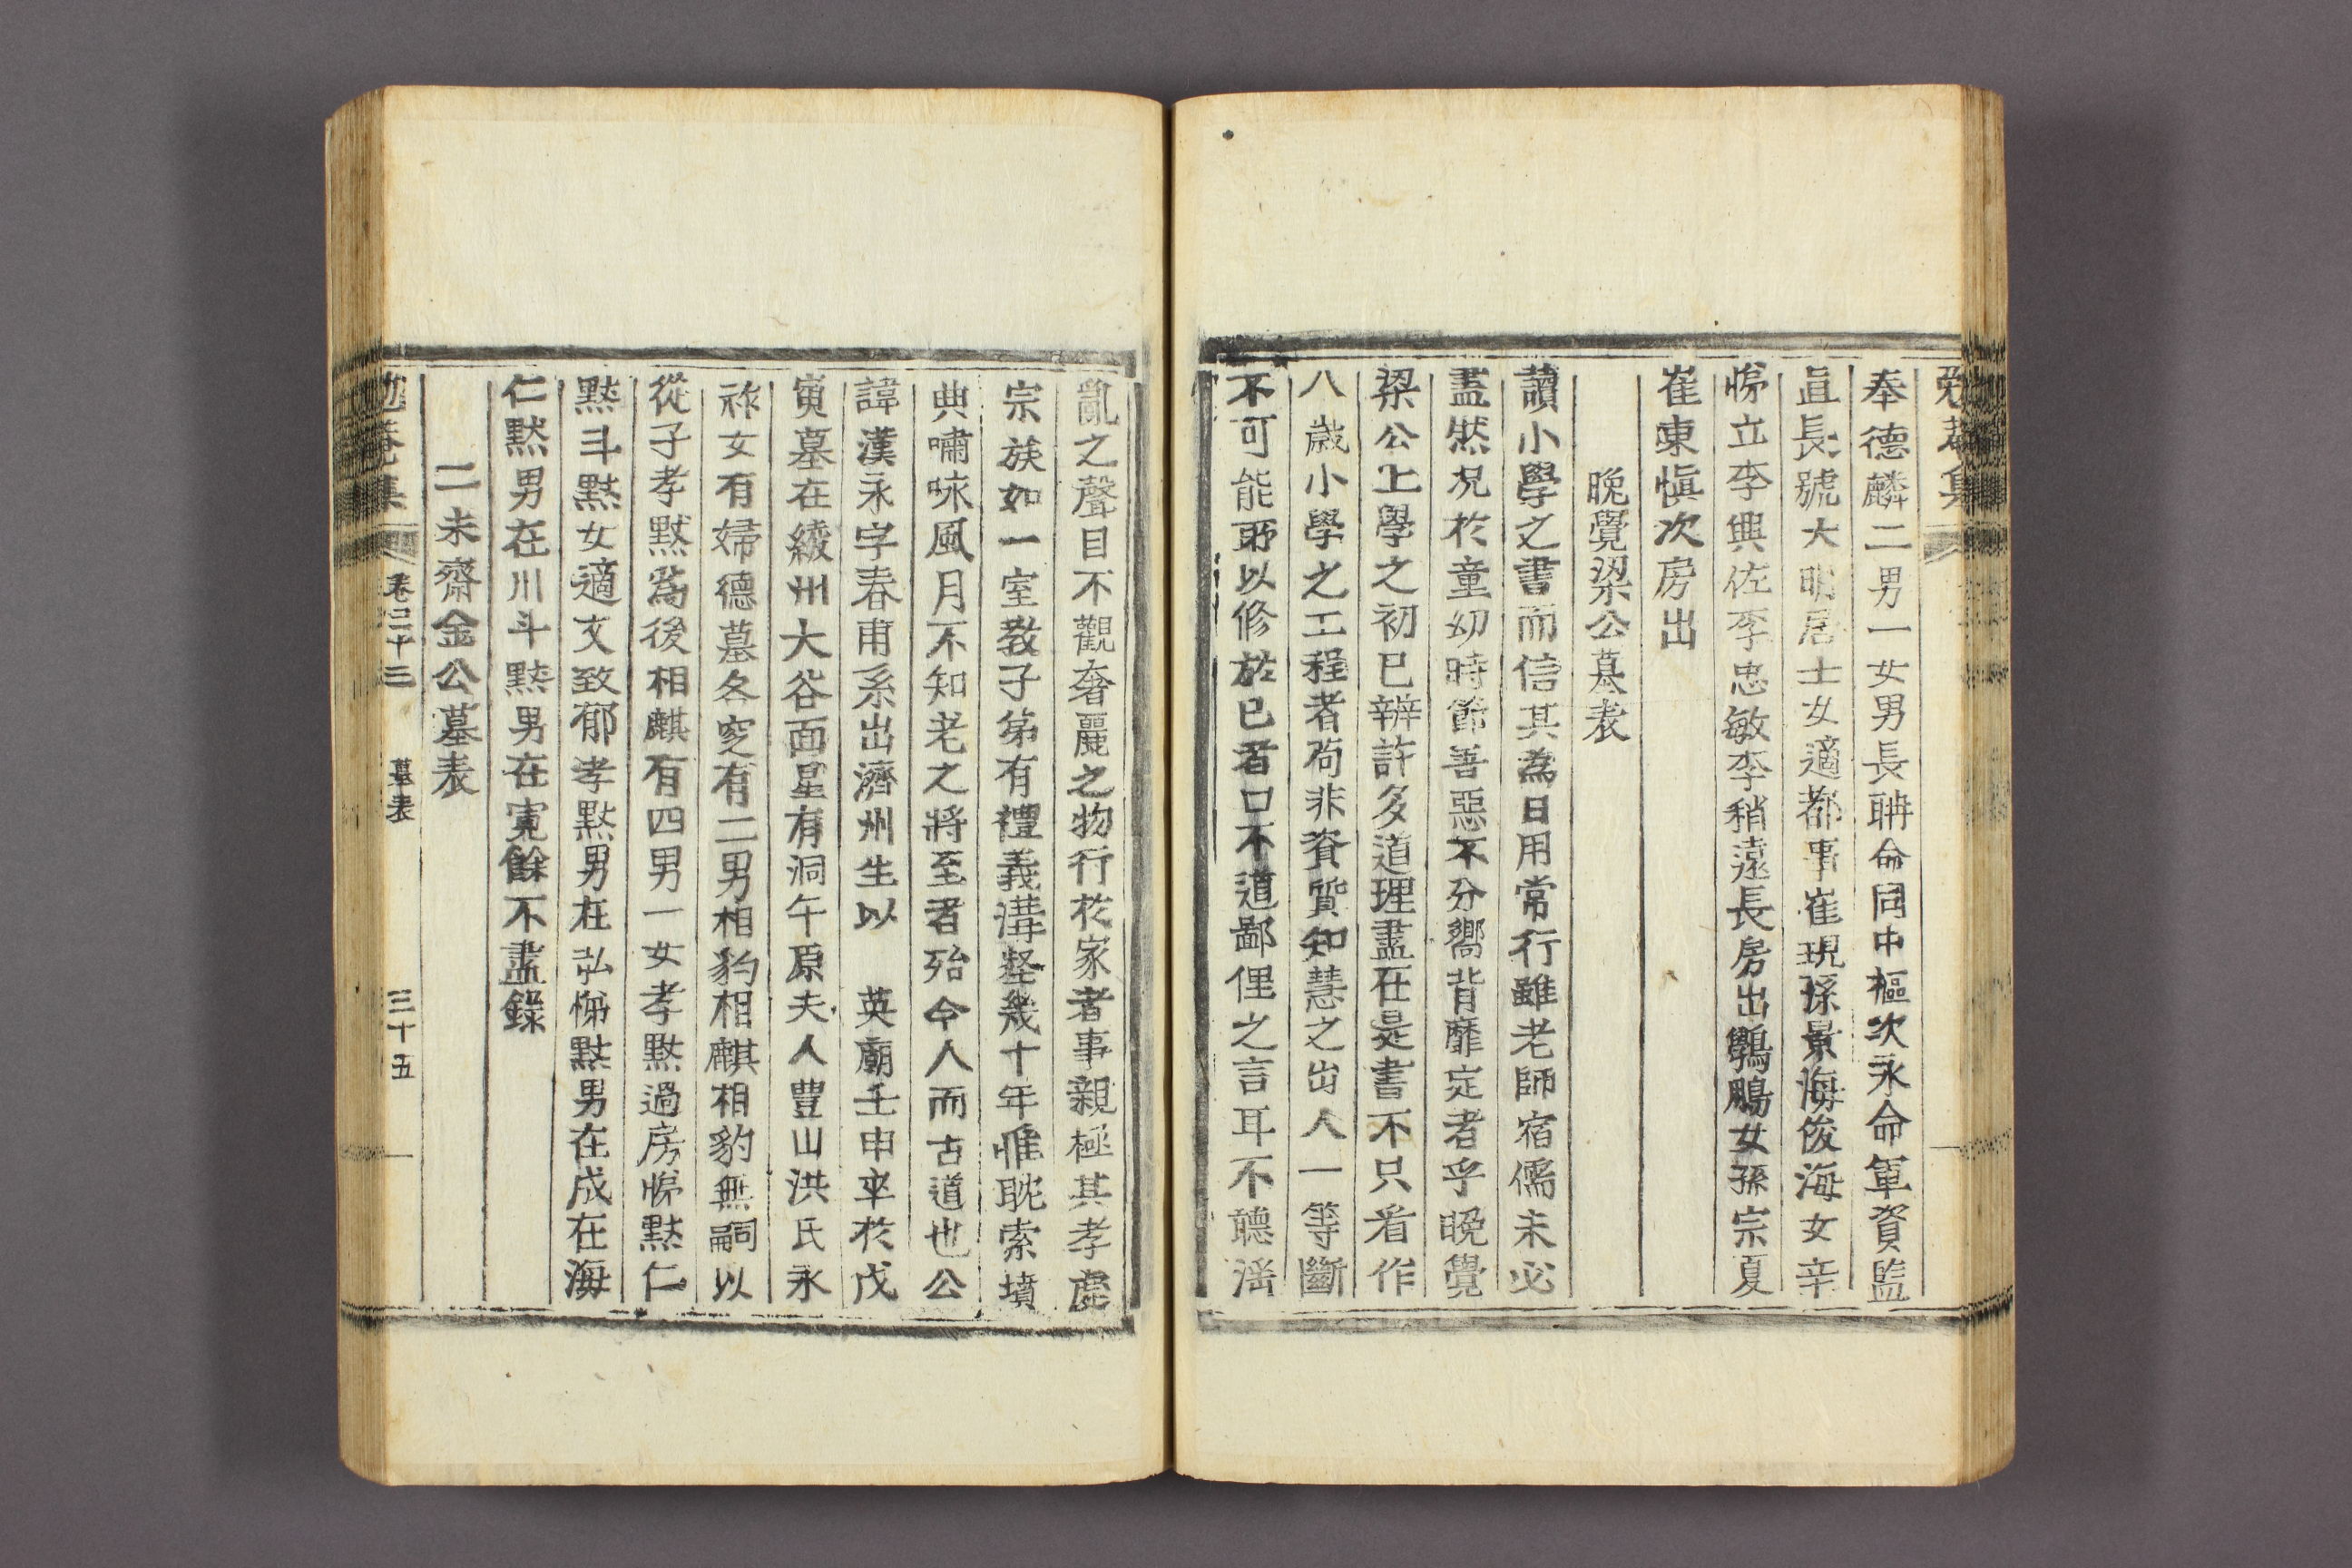 勉菴集
奉德麟二男一女男長聃命同中樞次永命軍資監
直長號大明居士女適都事崔琡孫景海俊海女辛
悌立李興佐李忠敏李稍遠長房出鸚鵬女孫宗夏
崔東愼次房出
晩覺梁公墓表
讀小學之書而信其為日用常行雖老師宿儒未必
盡然况於童幼時節善惡不分嚮背靡定者乎晩覺
梁公上學之初已辨許多道理盡在是書不只看作
八歲小學之工程者苟非資質知慧之出人一等斷
不可能所以修於己者口不道鄙俚之言耳不聽淫
亂之聲目不觀奢麗之物行於家者事親極其孝處
宗族如一室敎子弟有禮義溝壑幾十年惟耽索墳
典嘯咏風月不知老之將至者殆今人而古道也公
諱漢永字春甫系出濟州生以 英廟壬申卒於戊
寅墓在綾州大谷面星有洞午原夫人豊山洪氏永
祚女有婦德墓各窆有二男相豹相麒相豹無嗣以
從子孝黙爲後相麒有四男一女孝黙過房悌黙仁
黙斗黙女適文致郁孝黙男在弘悌黙男在成在海
仁黙男在川斗黙男在寬餘不盡錄
二未齋金公墓表
勉菴集 卷三十三 墓表 三十五